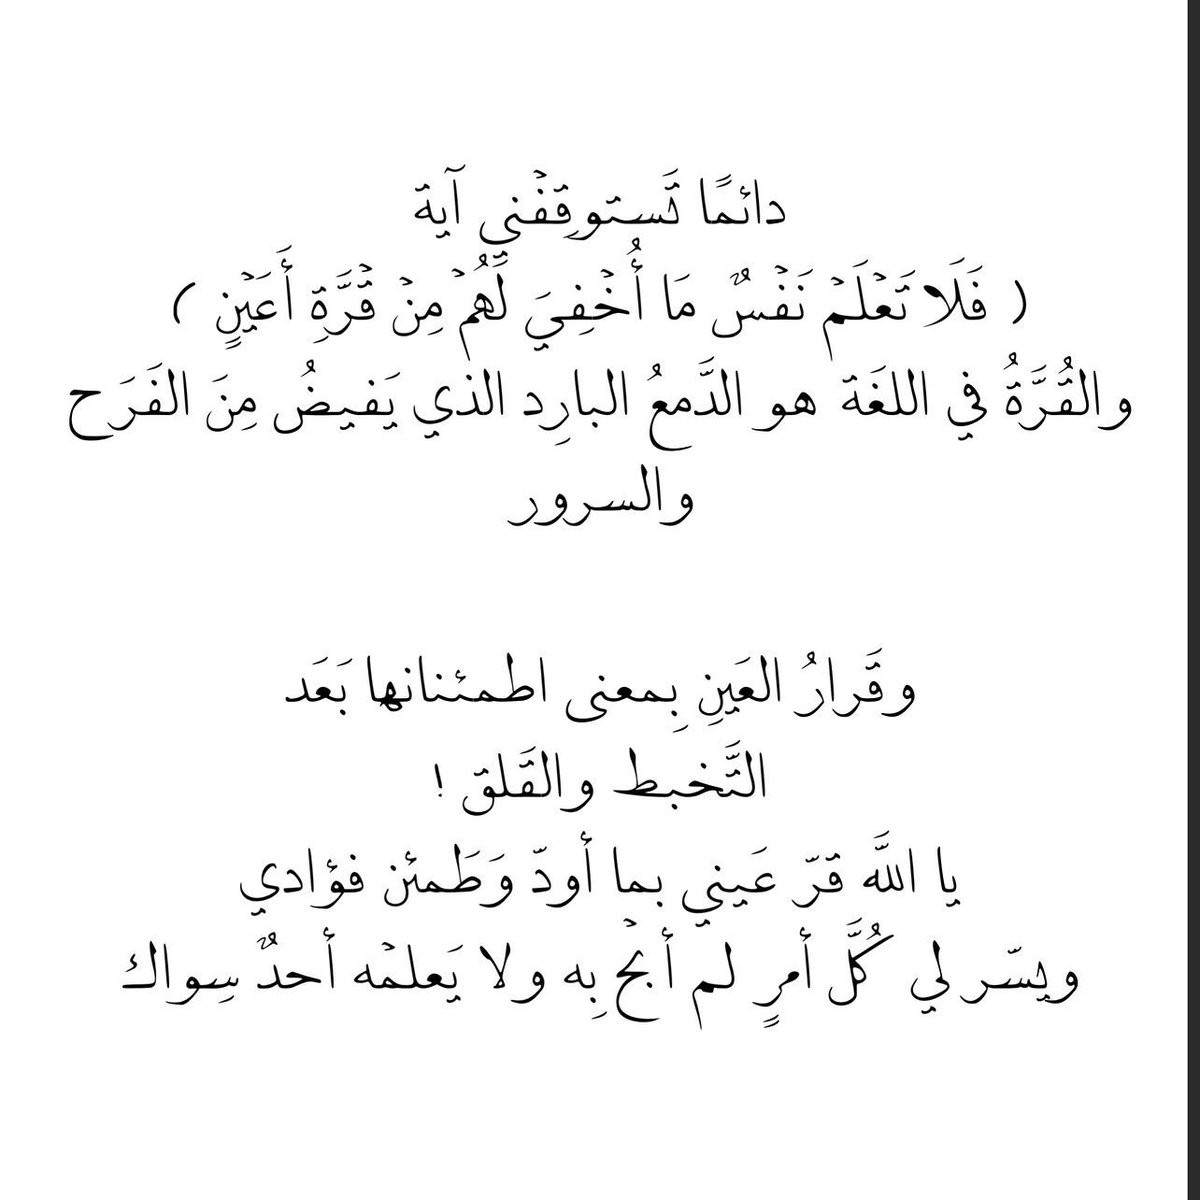 دائمًا تَستوقِفْني آية
( فَلَا تَعْلَمْ نَفْسٌ مَا أُخْفِيَ لَهُمْ مِنْ قُرَّةِ أَعَيْنٍ )
والقُرَّةُ في اللغَة هو الدَّمعُ البارِد الذي يَفيضُ مِنَ الفَرَح
والسرور
وقَرارُ العَينِ بِمعنى اطمئنانها بَعَد
التَّخبط والقَلق !
يا اللَّه قرّ عَيني بما أودّ وَطَمئن فؤادي
ويسّر لي كُلَّ أمرٍ لم أبحْ بِه ولا يَعلمْه أحدٌ سِواك